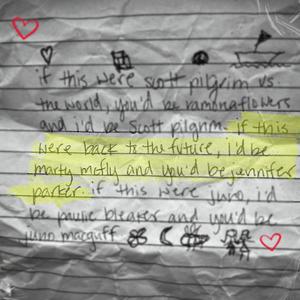 if this were scott pilgrim vs.
the world, you'd be ramonaflowers
and i'd be scott pilgrim. if this
were back to the future, i'd be
marty mcfly and you'd be jennifer
parker. if this were juno, i'd
be paulie bleaker and you'd be
juno macguff